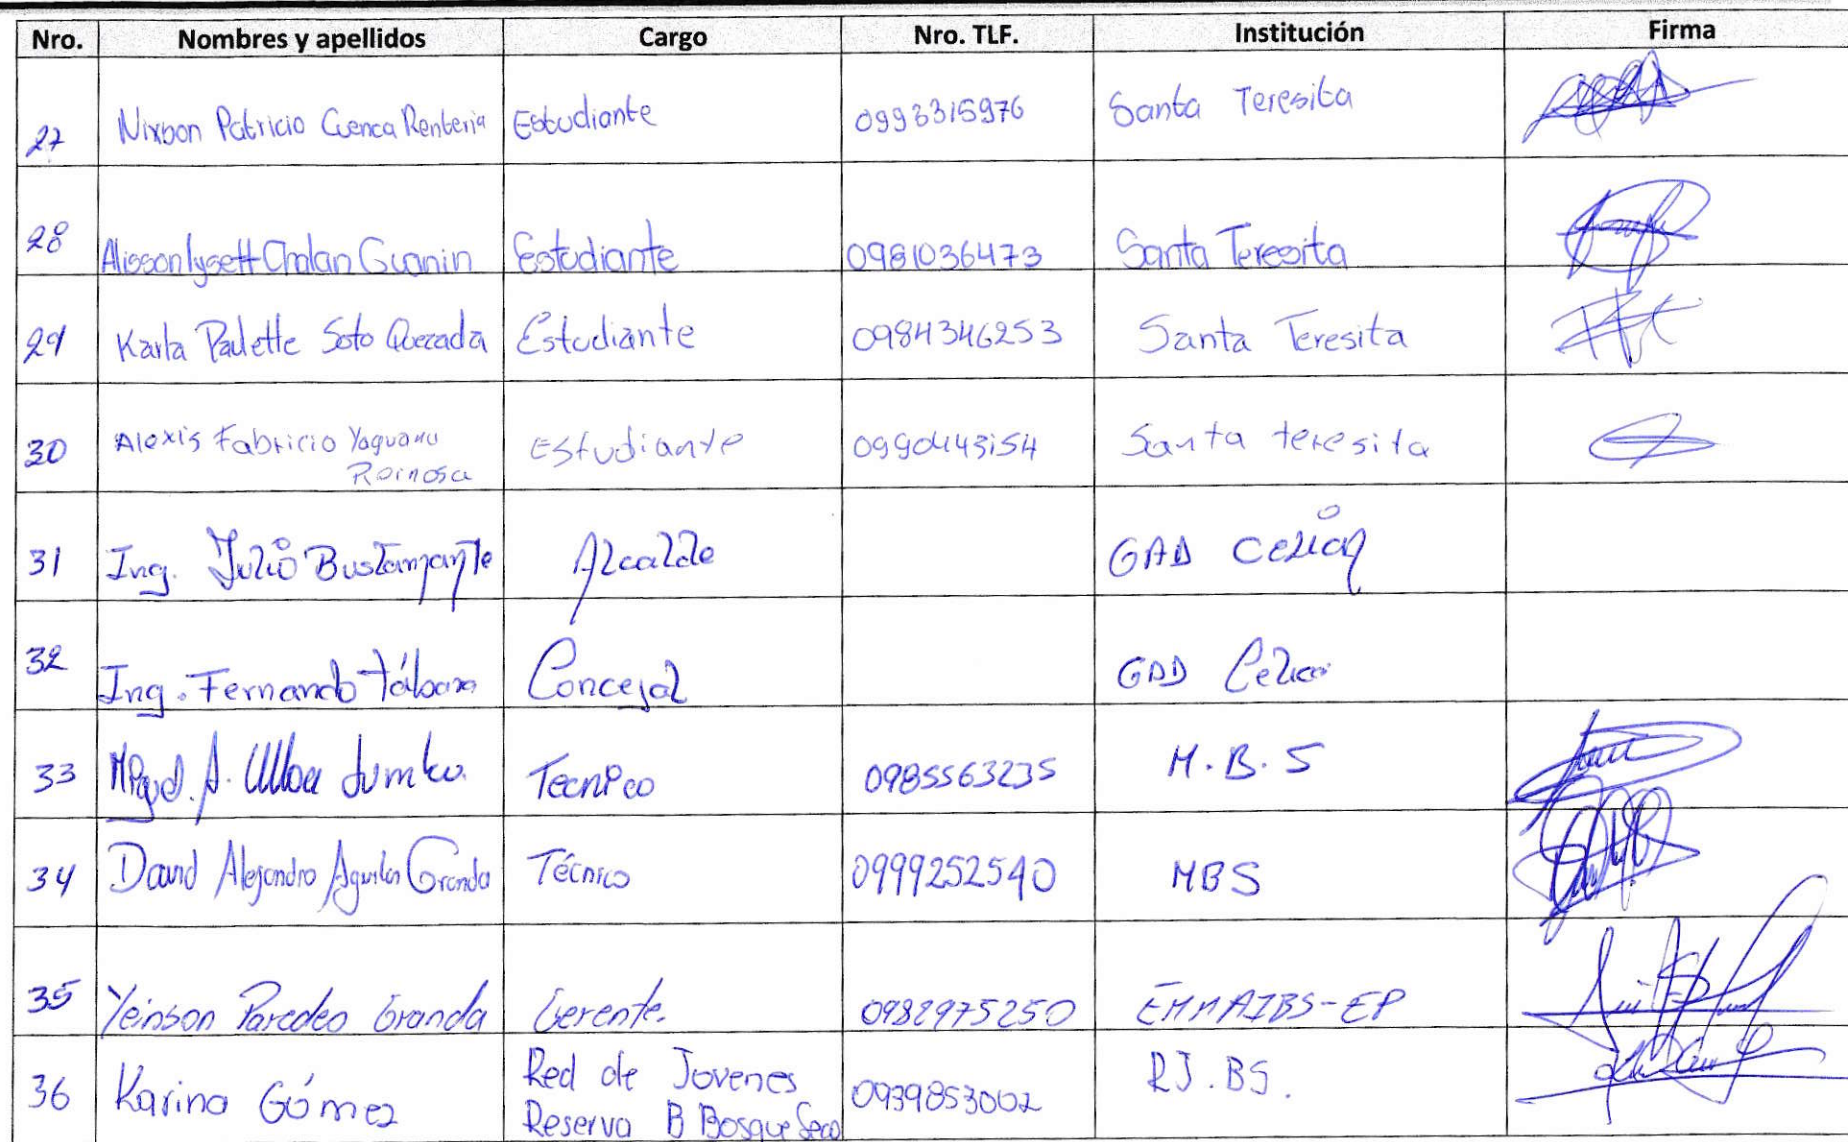 Nro. Nombres y apellidos Cargo Nro. TLF. Institución Firma
27 Nixson Patricio Cuenca Renteria Estudiante 0993315976 Santa Teresita
28 Alisson lysett Chalan Guanin Estudiante 0981036473 Santa Teresita
29 Karla Paulette Soto Quezada Estudiante 0984346253 Santa Teresita
30 Alexis Fabricio Yaguana Reinosa Estudiante 0990443154 Santa teresita
31 Ing. Julio Bustamante Alcalde GAD Celica
32 Ing. Fernando Concejal GAD Celica
33 Miguel. A. Ulloa Tecnico 0985563235 M.B.S
34 David Alejandro Aguilar Granda Técnico 0999252540 MBS
35 Yeinson Paredes Granda Gerente. 0982975250 EMMAIBS-EP
36 Karina Gómez Red de Jovenes Reserva B Bosque Seco 0939853002 RJ.BS.